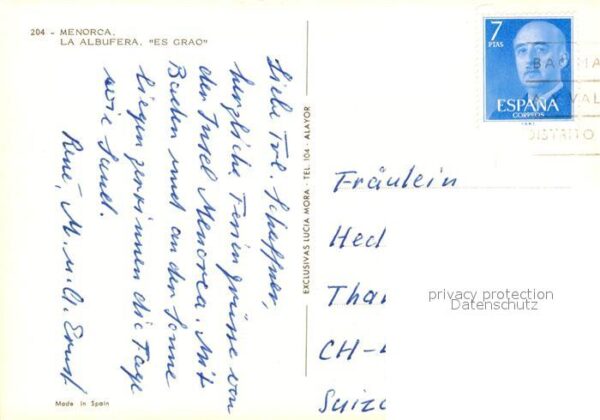 204 - MENORCA.
LA ALBUFERA. "ES GRAO"
Liebe Frl. Schaffner,
herzliche Feriengrüsse von
der Insel Menorca. Mit
Baden und an der Sonne
liegen zerrinnen die Tage
wie Sand.
René, M. u. A. Ernst
Made in Spain
EXCLUSIVAS LUCIA MORA - TEL. 104 - ALAYOR
7
PTAS
ESPAÑA
CORREOS
VAL
DISTRITO
Fräulein
Hed
Than
CH-
Suiz
privacy protection
Datenschutz